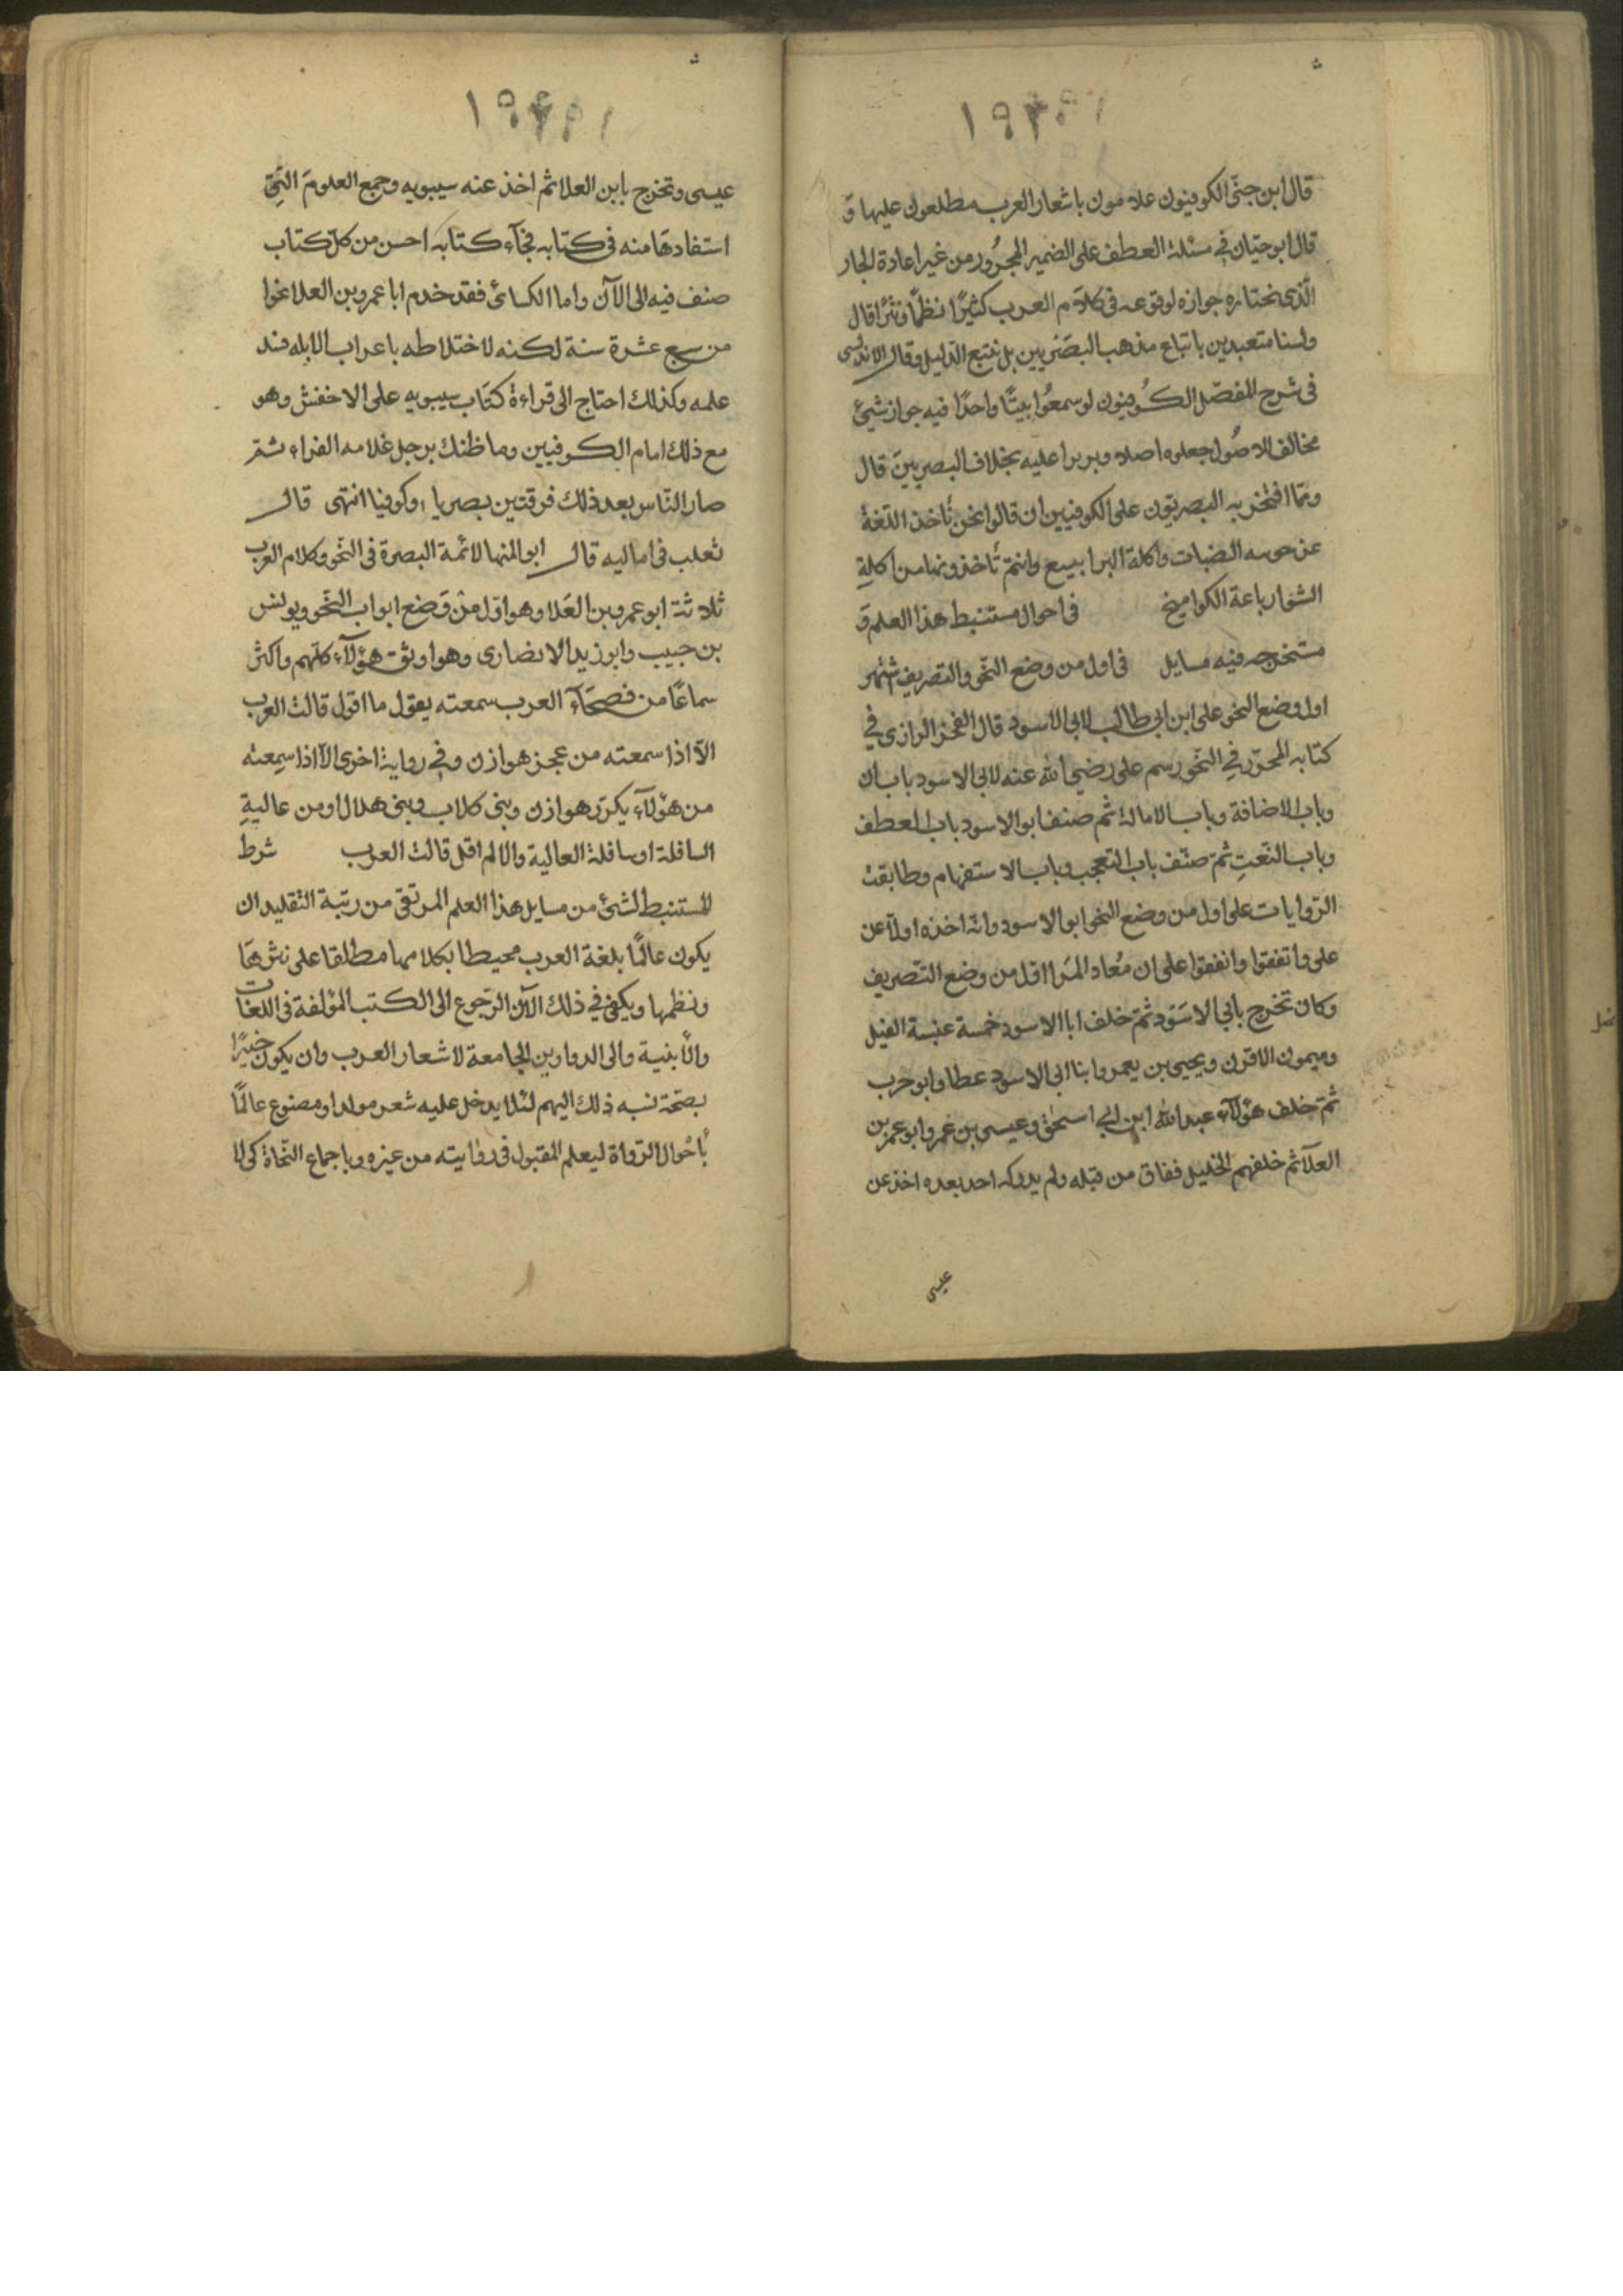 قال ابن جنّى الكوفيون علامون باشعار العرب مطلعون عليها و
قال ابو حيّان فى مسئلة العطف على الضمير المجرور من غير اعادة الجار
الّذى نختاره جوازه لوقوعه فى كلام العرب كثيرًا نظمًا ونثرًا قال
ولسنا متعبدين باتباع مذهب البصريين بل نتبع الدّليل وقال الاندلسى
فى شرح المفصّل الكوفيون لو سمعُوا بيتًا واحدًا فيه جواز شيئ
مخالف للاصُول جعلوه اصلا وبربرا عليه بخلاف البصريينَ قال
وممّا افتخر به البصريّون على الكوفيين ان قالوا نحن نأخذ اللّغة
عن حوسه الضبات واكلة اليرابيع وانتم تأخذونها من اكلةِ
الشوار باعة الكواميخ في احوال مستنبط هذا العلم وَ
مستخرجه فيه مسايل في اول من وضع النّحو والتصريف اشتهر
اول وضع النحو على ابن ابى طالب لابى الاسود قال الفخر الرازى فى
كتابه المحرّر فى النّحو رسم على رضي الله عنه لابى الاسود باب ان
وباب الاضافة وباب الامالة ثم صنف ابو الاسود باب العطف
وباب النّعتِ ثمّ صنّف باب التعجب وباب الاستفهام وطابقت
الرّوايات على اول من وضع النحو ابو الاسود وانّه اخذه اولاً عن
على واتفقوا واتفقوا على ان مُعاد المَرا اوّل من وضع التّصريف
وكان تخرج بابى الاسَوَد ثمّ خلف ابا الاسود خمسة عنبسة الفيل
وميمون الاقرن ويحيى بن يعمر وابنا ابى الاسود عطا وابو حرب
ثمّ خلف هؤلآء عبد الله ابن ابى اسحق وعيسى بن عمر وابو عمر بن
العلآ ثم خلفهم الخليل ففاق من قبله ولم يدركه احد بعده اخذ عن
عيسى
عيسى وتخرج بابن العلا ثم اخذ عنه سيبويه وجمع العلومَ الّتِى
استفادهَا منه فى كتابه فجآء كتابه احسن من كلّ كتاب
صنف فيه الى الآن واما الكسائ فقد خدم ابا عمرو بن العلا نحوا
من سبع عشرة سنة لكنه لاختلاطه باعراب الابله فسد
علمه وكذلك احتاج الى قراءة كتَاب سيبويه على الاخفش وهو
مع ذلك امام الكوفيين وما ظنك برجل غلامه الفراء ثمّ
صار النّاس بعد ذلك فرقتين بصريا وكوفيا انتهى قال
ثعلب فى اماليه قال ابو المنهال لائمة البصرة فى النّحو وكلام العرب
ثلاثة ابو عمرو بن العَلا وهو اوّل منْ وَضع ابواب النّحو ويونس
بن حبيب وابو زيد الانصارى وهو اوثق هؤلآء كلّهم واكثر
سماعًا من فصحَآء العرب سمعته يقول ما اقول قالت العرب
الاّ اذا سمعته من عجز هوازن وفى رواية اخرى الاّ اذا سمِعته
من هؤلآء يكرّر هوازن وبنى كلاب وبنى هلال اومن عاليةِ
السافلة او سافلة العالية والا لم اقل قالت العرب شرط
للمستنبط لشئ من مسايل هذا العلم المرتقى من رتبة التقليد ان
يكون عالمًا بلغة العرب محيطا بكلامها مطلقا على نثرهَا
ونظمها ويكفى فى ذلك الآن الرّجوع الى الكتب المؤلفة فى اللغات
والأبنية والى الدواوين الجامعة لاشعار العرب وان يكون خبيرًا
بصحّة نسبه ذلك اليهم لئلا يدخل عليه شعر مولد او مصنوع عالمًا
بأحْوال الرّواة ليعلم المقبول فى روايته من غيره وباجماع النّحاة كى لا